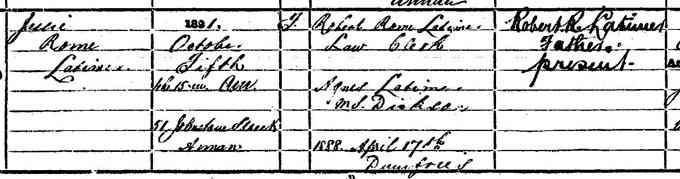 Annan
Jessie
Rome
Latimer
1891.
October
Fifth
5h. 15m. A.M.
51 Johnstone Street
Annan
F.
Robert Rome Latimer
Law Clerk
Agnes Latimer
M.S. Dickson
1888. April 17th
Dumfries
Robert R. Latimer
Father
present